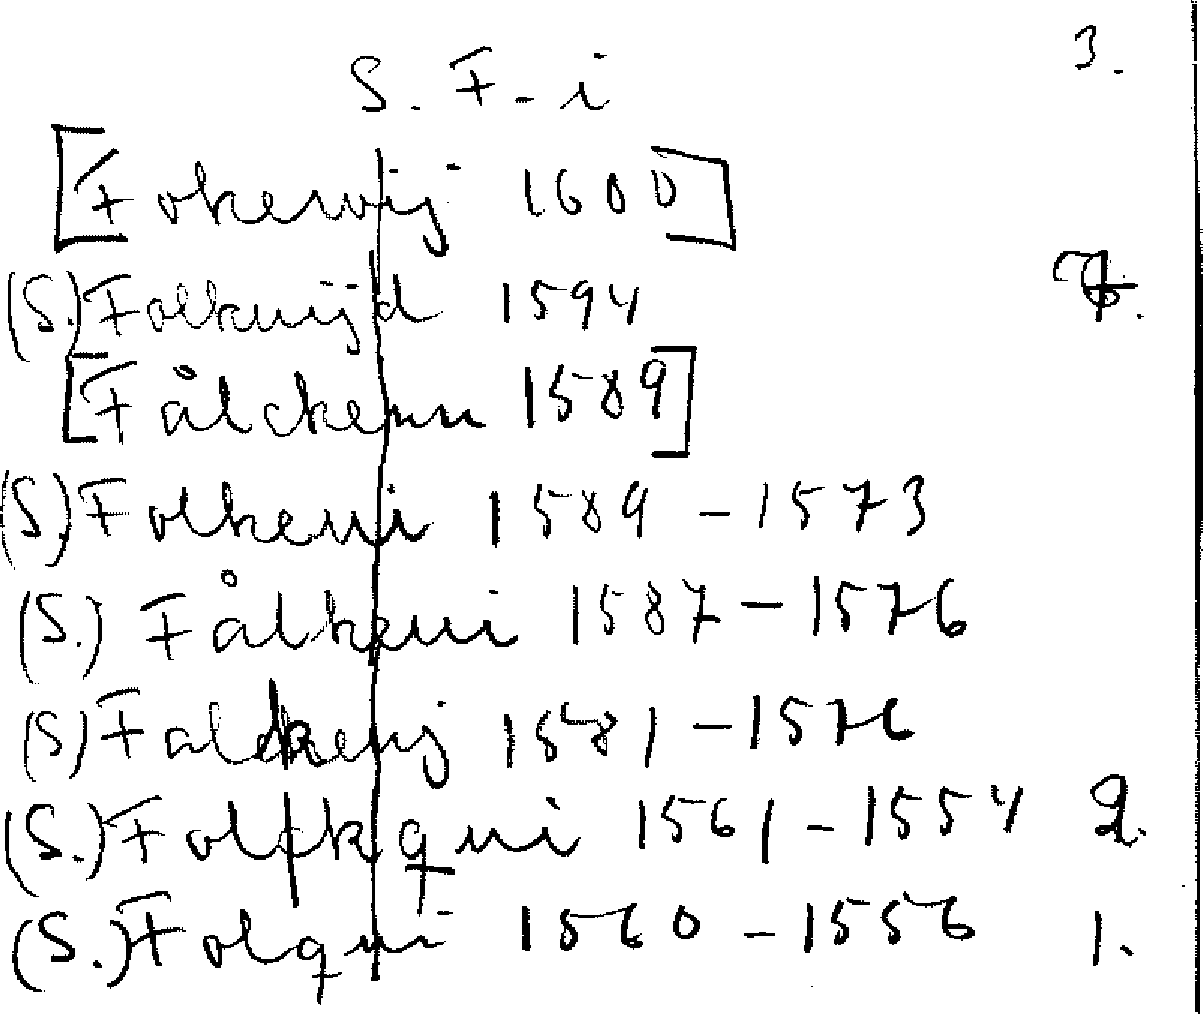 S. F-i 3.
[Fokervij 1600]
(S.) Folkuijd 1594
[Fålckenn 1589]
(S) Folkeui 1589 - 1573
(S.) Fålkeui 1587 - 1576
(S) Falckeuj 1581 - 1576
(S.) Folckqui 1561 - 1554 2.
(S.) Folqui 1560 - 1556 1.